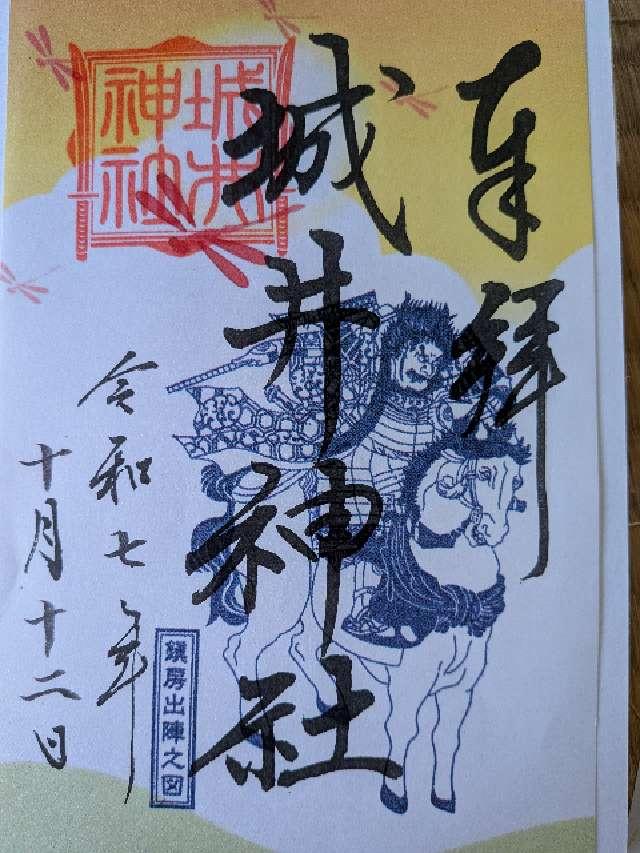 奉拝
城井神社
令和七年
十月十二日
城井
神社
鎮房出陣之図